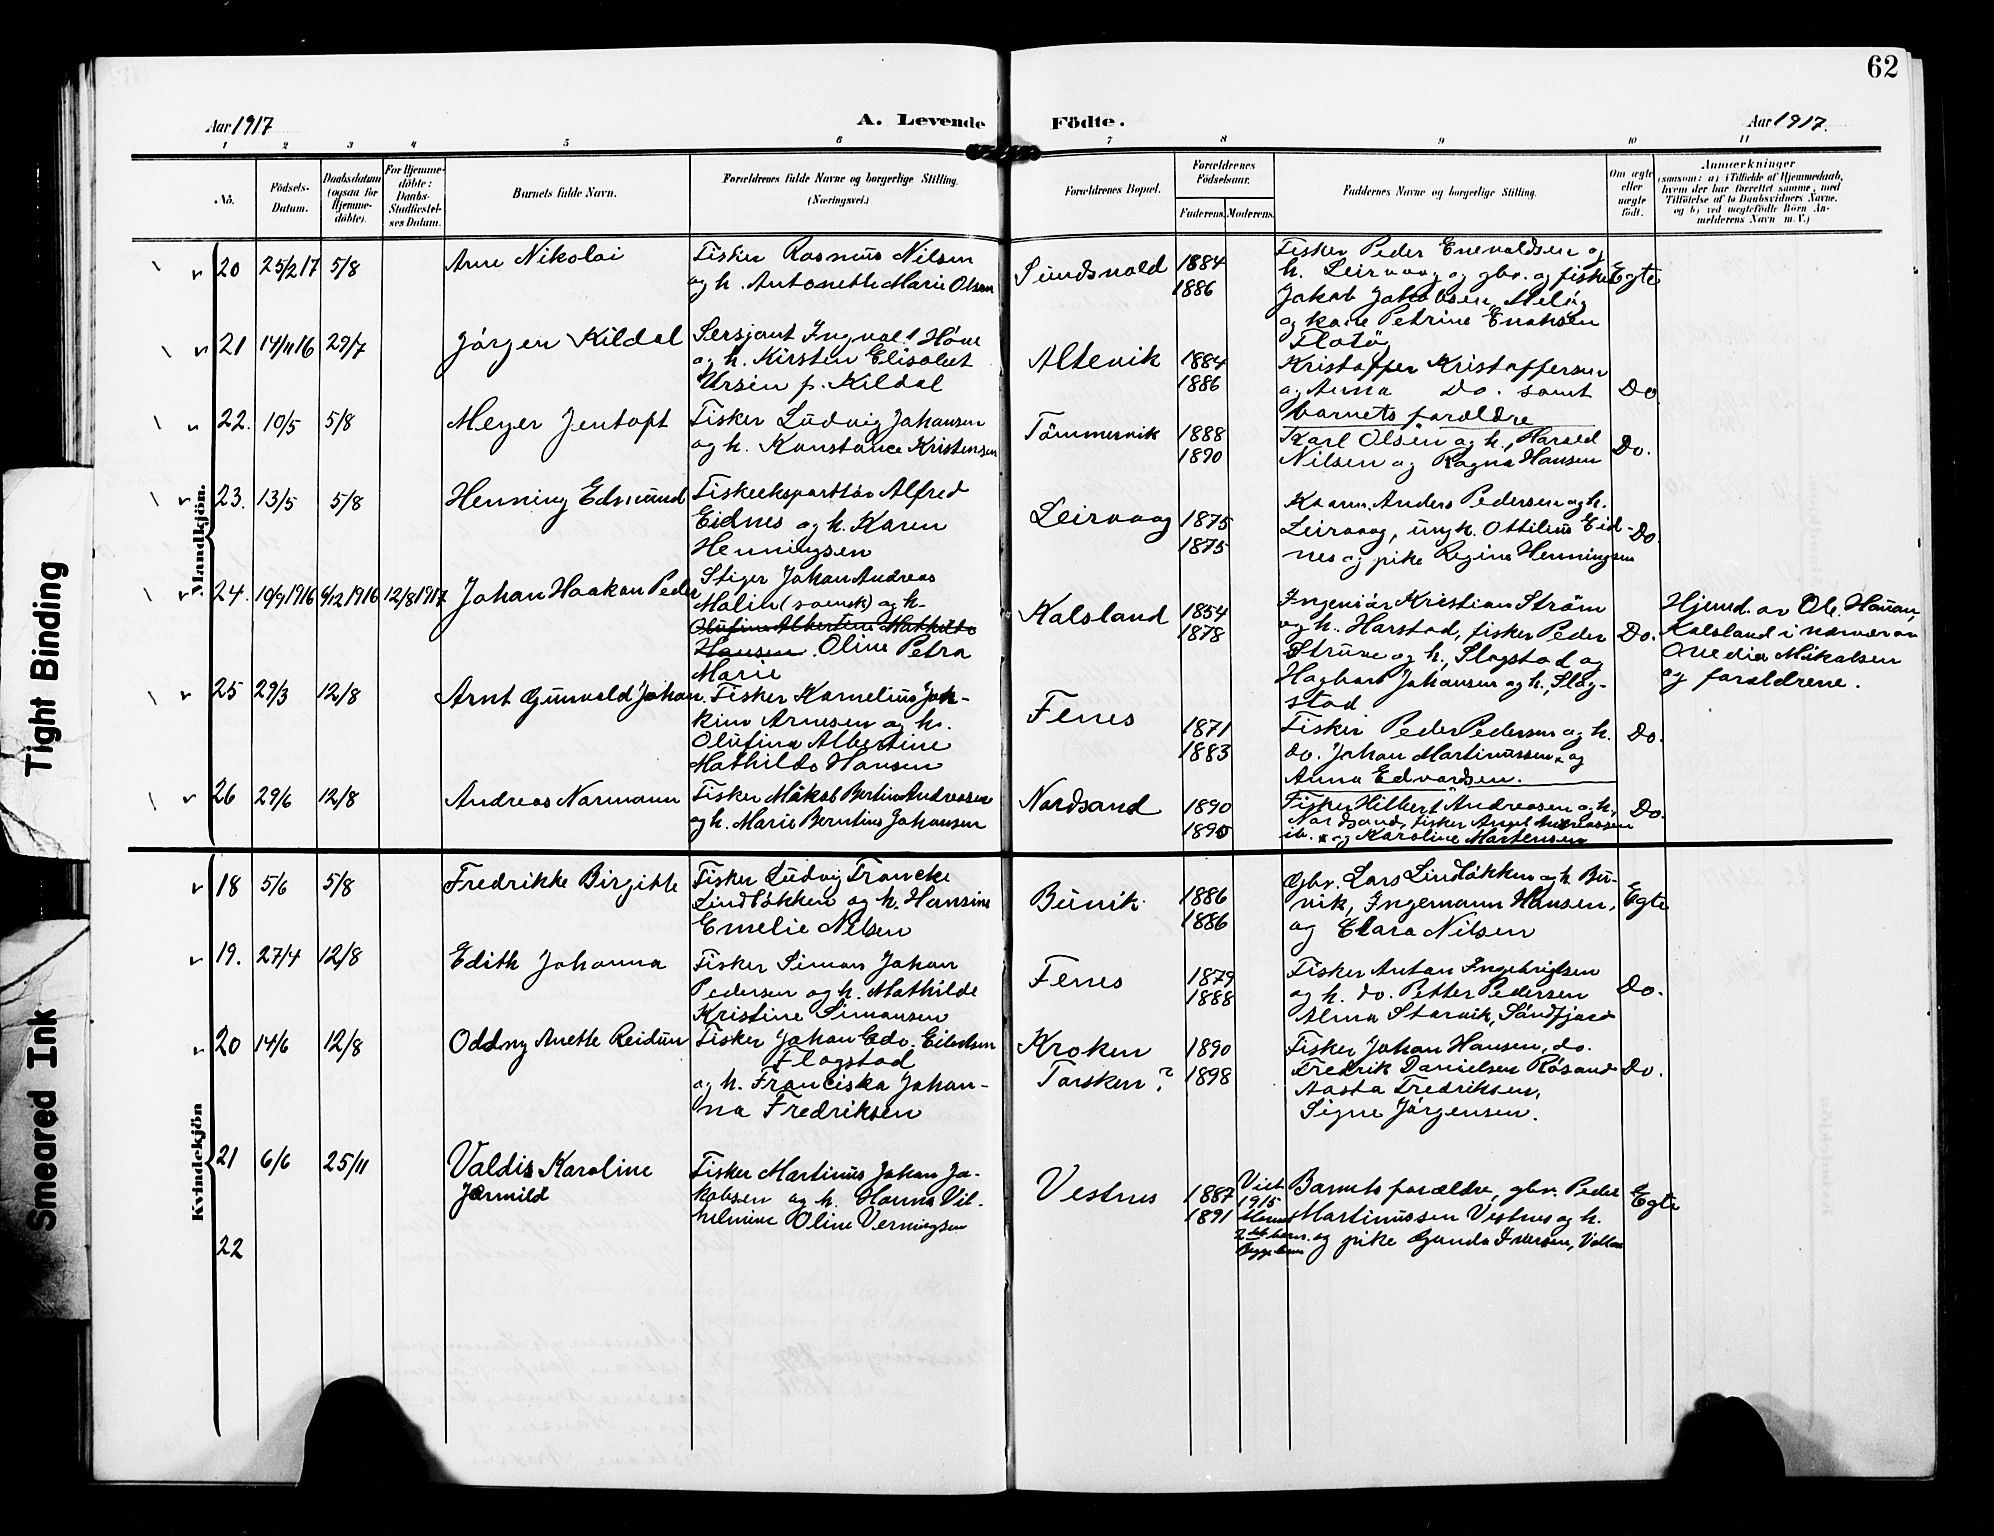 62
Aar 1917
A. Levende Födte.
Aar 1917.
1 2 3 4 5 6 7 8 9 10 11
No.
Födsels-
Datum.
Daabsdatum
(ogsaa for
Hjemme-
döbte).
For Hjemme-
döbte:
Daabs-
Stadfæstel-
ses Datum.
Barnets fulde Navn.
Forældrenes fulde Navne og borgerlige Stilling.
(Næringsvei.)
Forældrenes Bopæl.
Forældrenes
Födselsaar.
Faderens. Moderens.
Faddernes Navne og borgerlige Stilling.
Om ægte
eller
uægte
födt.
Anmærkninger
(saasom: a) i Tilfælde af Hjemmedaab,
hvem der har forrettet samme, med
Tilföielse af to Daabsvidners Navne,
og b) ved uægtefödte Börn An-
melderens Navn m. V.)
Mandkjön.
20 25/2 17 5/8
Arne Nikolai
Fisker Rasmus Nilsen
og h. Antonette Marie Olsen
Sundsvold
1884
1886
Fisker Peder Enevoldsen og
h. Leirvaag og gbr. og fisker
Jakob Jakobsen, Meløy
og kone Petrine Enoksen
Flatøy
Egte
21 14/11 16 29/7
Jørgen Kildal
Sersjant Ingval Høve
og h. Kirsten Elisabet
Ursin f. Kildal
Altevik
1884
1886
Kristoffer Kristoffersen
og Anna Do. samt
barnets forældre
Do.
22. 10/5 5/8
Meyer Jentoft
Fisker Ludvig Johansen
og h. Konstance Kristensen
Tömmervik
1888
1890
Karl Olsen og h., Harald
Nilsen og Ragna Hansen
Do.
23. 13/5 5/8
Henning Edmund
Fiskeeksportør Alfred
Eidnes og h. Karen
Henningsen
Leirvaag
1875
1875
Kaarm. Anders Pedersen og h.
Leirvaag, ungk. Ottilius Eid-
nes og pike Regine Henningsen
Do.
24. 10/9 1916 9/12 1916 12/8 1917
Johan Haakon Peder
Stiger Johan Andreas
Malin (svensk) og h.
Olufine Albertine Mathilde
Hansen. Oline Petra
Marie
Kalsland
1854
1878
Ingeniør Kristian Strøm
og h. Harstad, fisker Peder
Strüve og h., Slagstad og
Hagbart Johansen og h., Slag-
stad
Do.
Hjemd. av Ol. Hanan,
Kalsland i nærvær av
Ovedia Mikalsen
og forældrene.
25 29/3 12/8
Arnt Gunvald Johan.
Fisker Kornelius Joh-
kim Arnesen og h.
Olufina Albertine
Mathilde Hansen
Fenes
1871
1883
Fisker Peder Pedersen og h.
do. Johan Martinussen og
Anna Edvardsen.
Do.
26 29/6 12/8
Andreas Normann
Fisker Mikal Bertin Andreasen
og h. Marie Berntine Johansen
Nordsand
1890
1890
Fisker Hilbert Andreasen og h,
Nordsand, fisker Angel Andreassen
ib. og Karoline Martensen
Do.
Kvindekjön
18 5/6 5/8
Fredrikke Birgitte
Fisker Ludvig Francke
Lindløkken og h. Hansine
Emelie Nilsen
Bunik
1886
1886
Gbr. Lars Lindløkken og h. Bu-
nik, Ingemann Hansen,
og Clara Nilsen
Egte
19. 27/4 12/8
Edith Johanna
Fisker Simon Johan
Pedersen og h. Mathilde
Kristine Simonsen
Fenes
1879
1888
Fisker Anton Ingebrigtsen
og h. do. Petter Pedersen
Alma Starvik, Sandfjord
Do.
20 14/6 12/8
Oddny Anette Reidun
Fisker Johan Edv. Eilertsen
Flagstad
og h. Franciska Johan-
na Fredriksen
Kroken
Torsken?
1890
1898
Fisker Johan Hansen, do.
Fredrik Danielsen Røsand
Aasta Fredriksen,
Signe Jørgensen.
Do.
21 6/6 25/11
Valdis Karoline
Jormild
Fisker Martinus Johan Ja-
kobsen og h. Hanna Vil-
helmine Oline Verningsen
Vestnes
1887
1891
Viet
1915
Barnets forældre, gbr. Peder
Martinussen Vestnes og h.
og pike Gunda Iversen,
Egte
22
Tight Binding
Smeared Ink